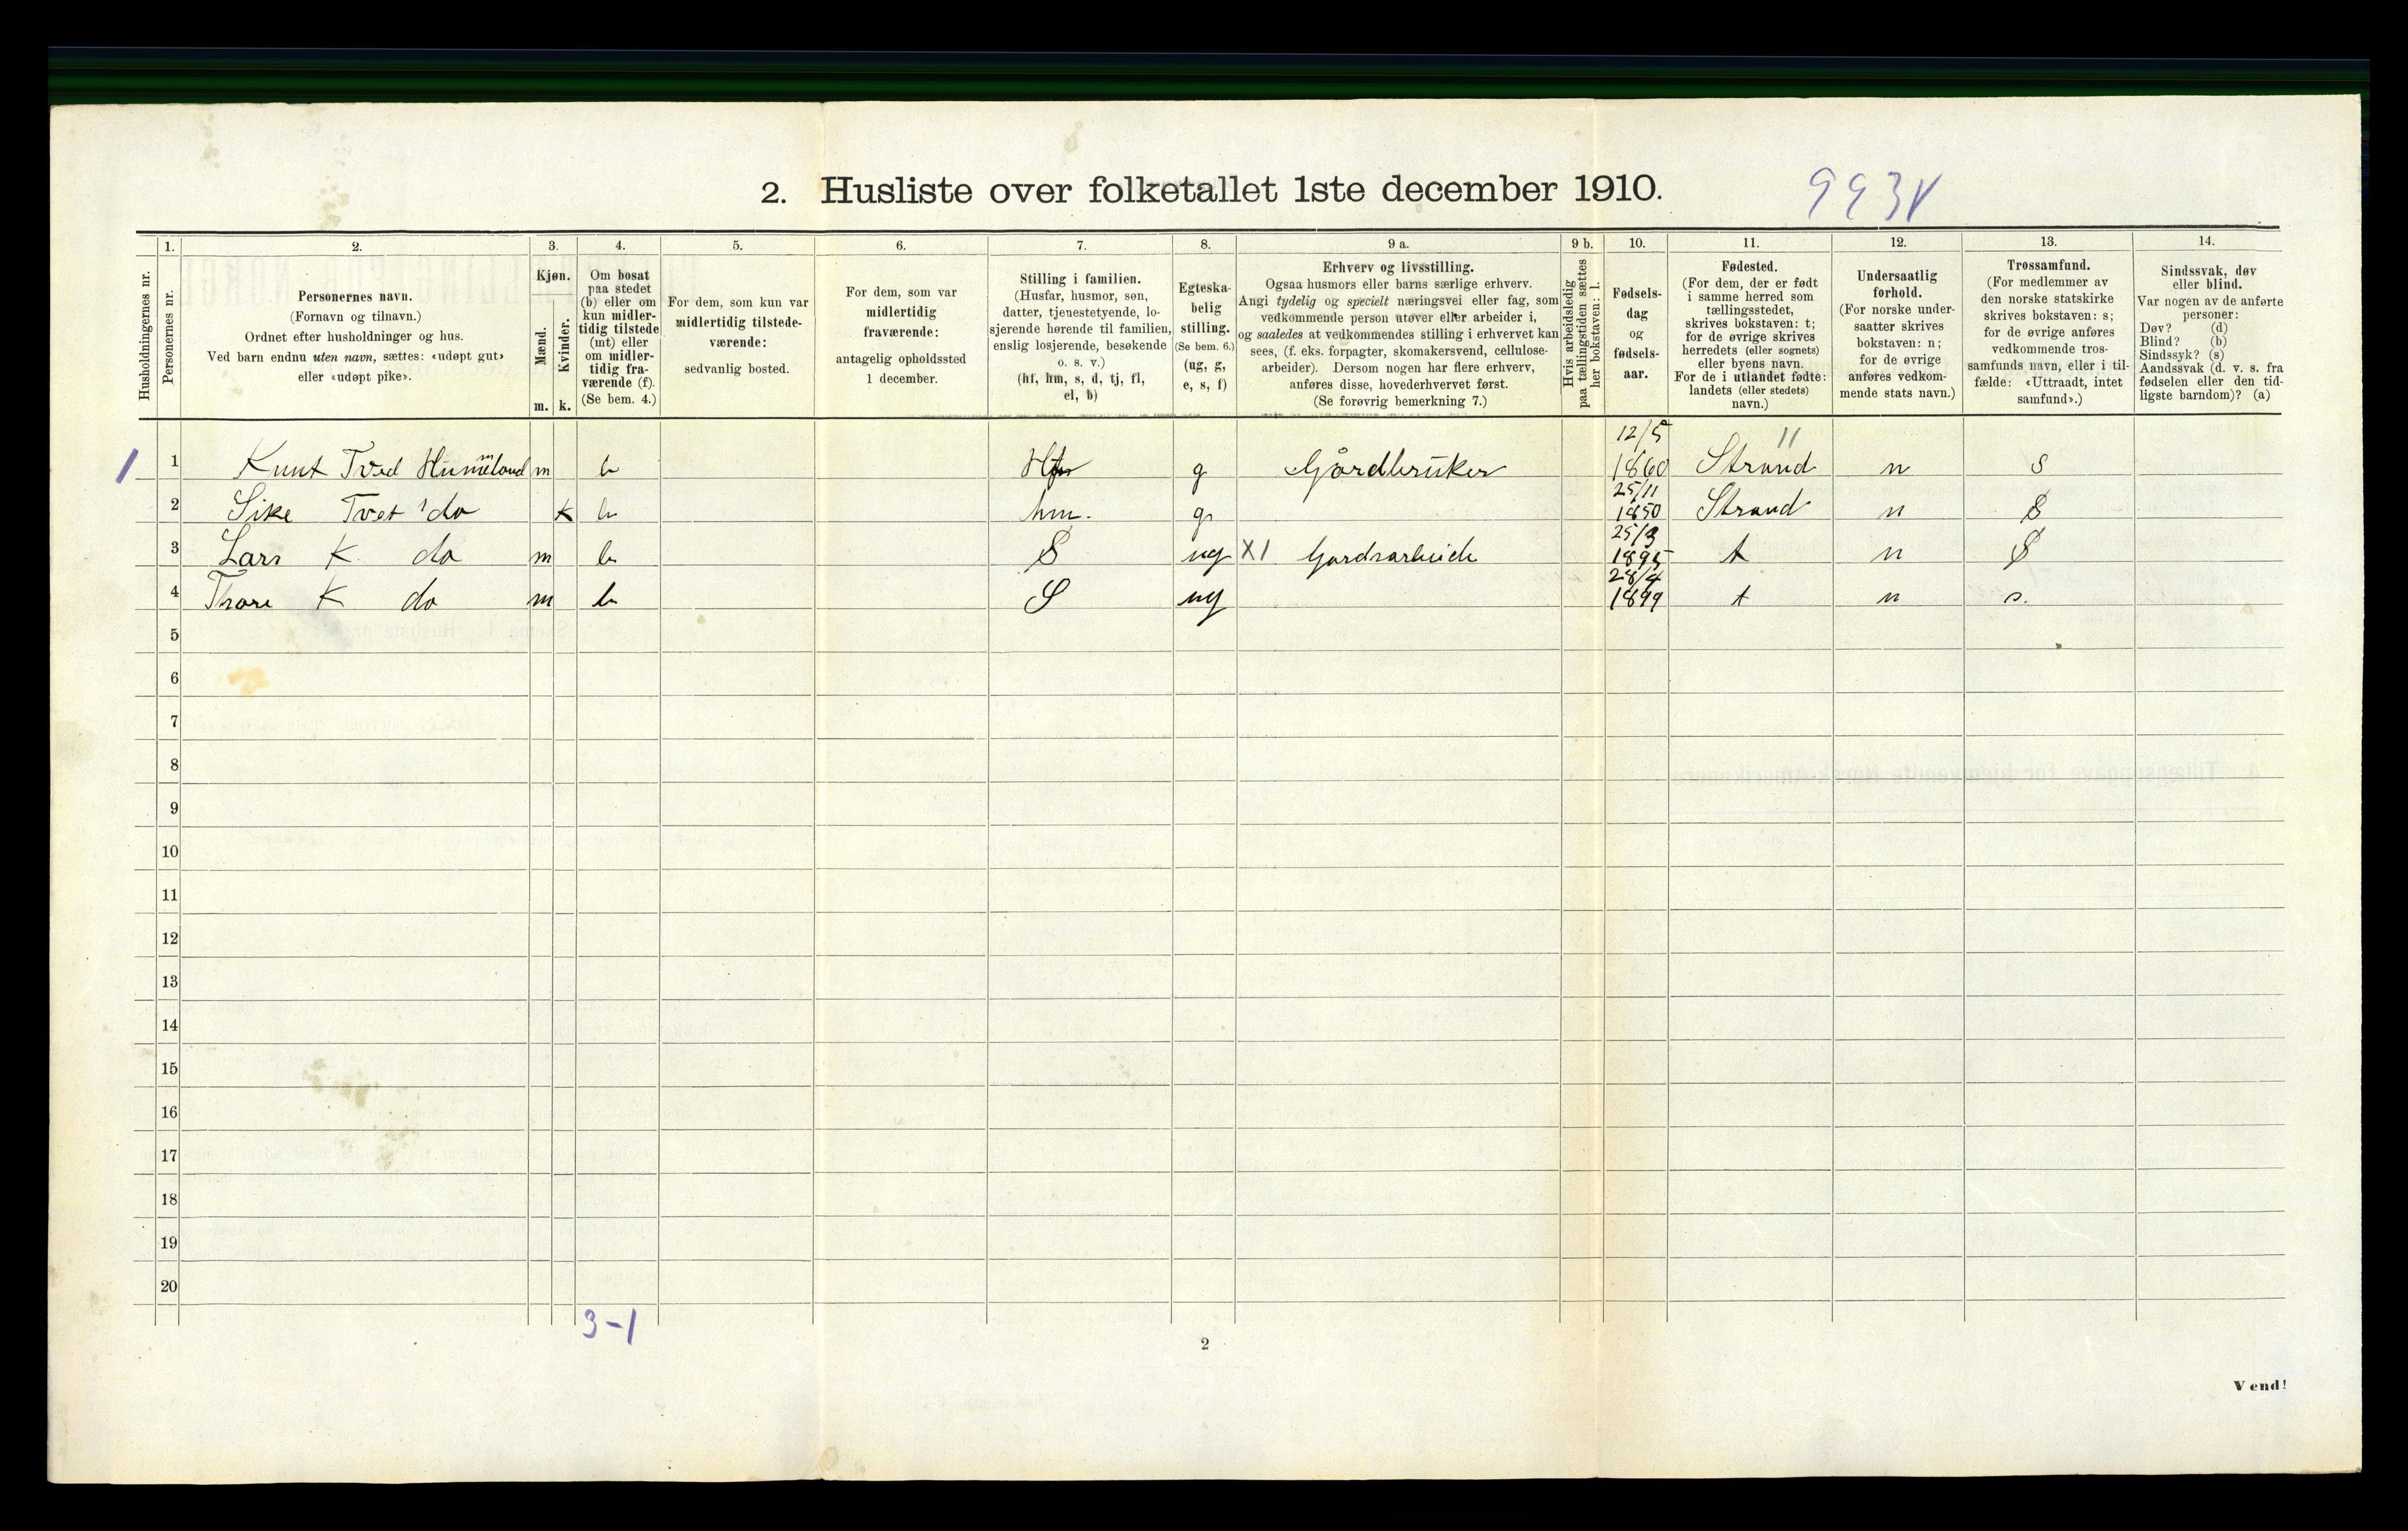 2. Husliste over folketallet 1ste december 1910.
993V
Husholdningernes nr.
1.
Personernes nr.
2.
Personernes navn.
(Fornavn og tilnavn.)
Ordnet efter husholdninger og hus.
Ved barn endnu uten navn, sættes: «udøpt gut»
eller «udøpt pike».
3.
Kjøn.
Mænd.
Kvinder.
m. k.
4.
Om bosat
paa stedet
(b) eller om
kun midler-
tidig tilstede
(mt) eller
om midler-
tidig fra-
værende (f).
(Se bem. 4.)
5.
For dem, som kun var
midlertidig tilstede-
værende:
sedvanlig bosted.
6.
For dem, som var
midlertidig
fraværende:
antagelig opholdssted
1 december.
7.
Stilling i familien.
(Husfar, husmor, søn,
datter, tjenestetyende, lo-
sjerende hørende til familien,
enslig losjerende, besøkende
o. s. v.)
(hf, hm, s, d, tj, fl,
el, b)
8.
Egteska-
belig
stilling.
(Se bem. 6.)
(ug, g,
e, s, f)
9 a.
Erhverv og livsstilling.
Ogsaa husmors eller barns særlige erhverv.
Angi tydelig og specielt næringsvei eller fag, som
vedkommende person utøver eller arbeider i,
og saaledes at vedkommendes stilling i erhvervet kan
sees, (f. eks. forpagter, skomakersvend, cellulose-
arbeider). Dersom nogen har flere erhverv,
anføres disse, hovederhvervet først.
(Se forøvrig bemerkning 7.)
9 b.
Hvis arbeidsledig
paa tællingstiden sættes
her bokstaven: l.
10.
Fødsels-
dag
og
fødsels-
aar.
11.
Fødested.
(For dem, der er født
i samme herred som
tællingsstedet,
skrives bokstaven: t;
for de øvrige skrives
herredets (eller sognets)
eller byens navn.
For de i utlandet fødte:
landets (eller stedets)
navn.)
12.
Undersaatlig
forhold.
(For norske under-
saatter skrives
bokstaven: n;
for de øvrige
anføres vedkom-
mende stats navn.)
13.
Trossamfund.
(For medlemmer av
den norske statskirke
skrives bokstaven: s;
for de øvrige anføres
vedkommende tros-
samfunds navn, eller i til-
fælde: «Uttraadt, intet
samfund».)
14.
Sindssvak, døv
eller blind.
Var nogen av de anførte
personer:
Døv? (d)
Blind? (b)
Sindssyk? (s)
Aandssvak (d. v. s. fra
fødselen eller den tid-
ligste barndom)? (a)
1 1 Knut Tved m b g Gårdbruker 12/5 1860 Strand 11 n s
2 Sike Tvet do k b hm. g 25/11 1850 Strand n S
3 Lars K do m b S ug X1 Gardsarbeide 25/3 1895 t n S
4 Thore K do m b S ug 28/4 1899 t n s.
5
6
7
8
9
10
11
12
13
14
15
16
17
18
19
20
3-1
2
Vend!